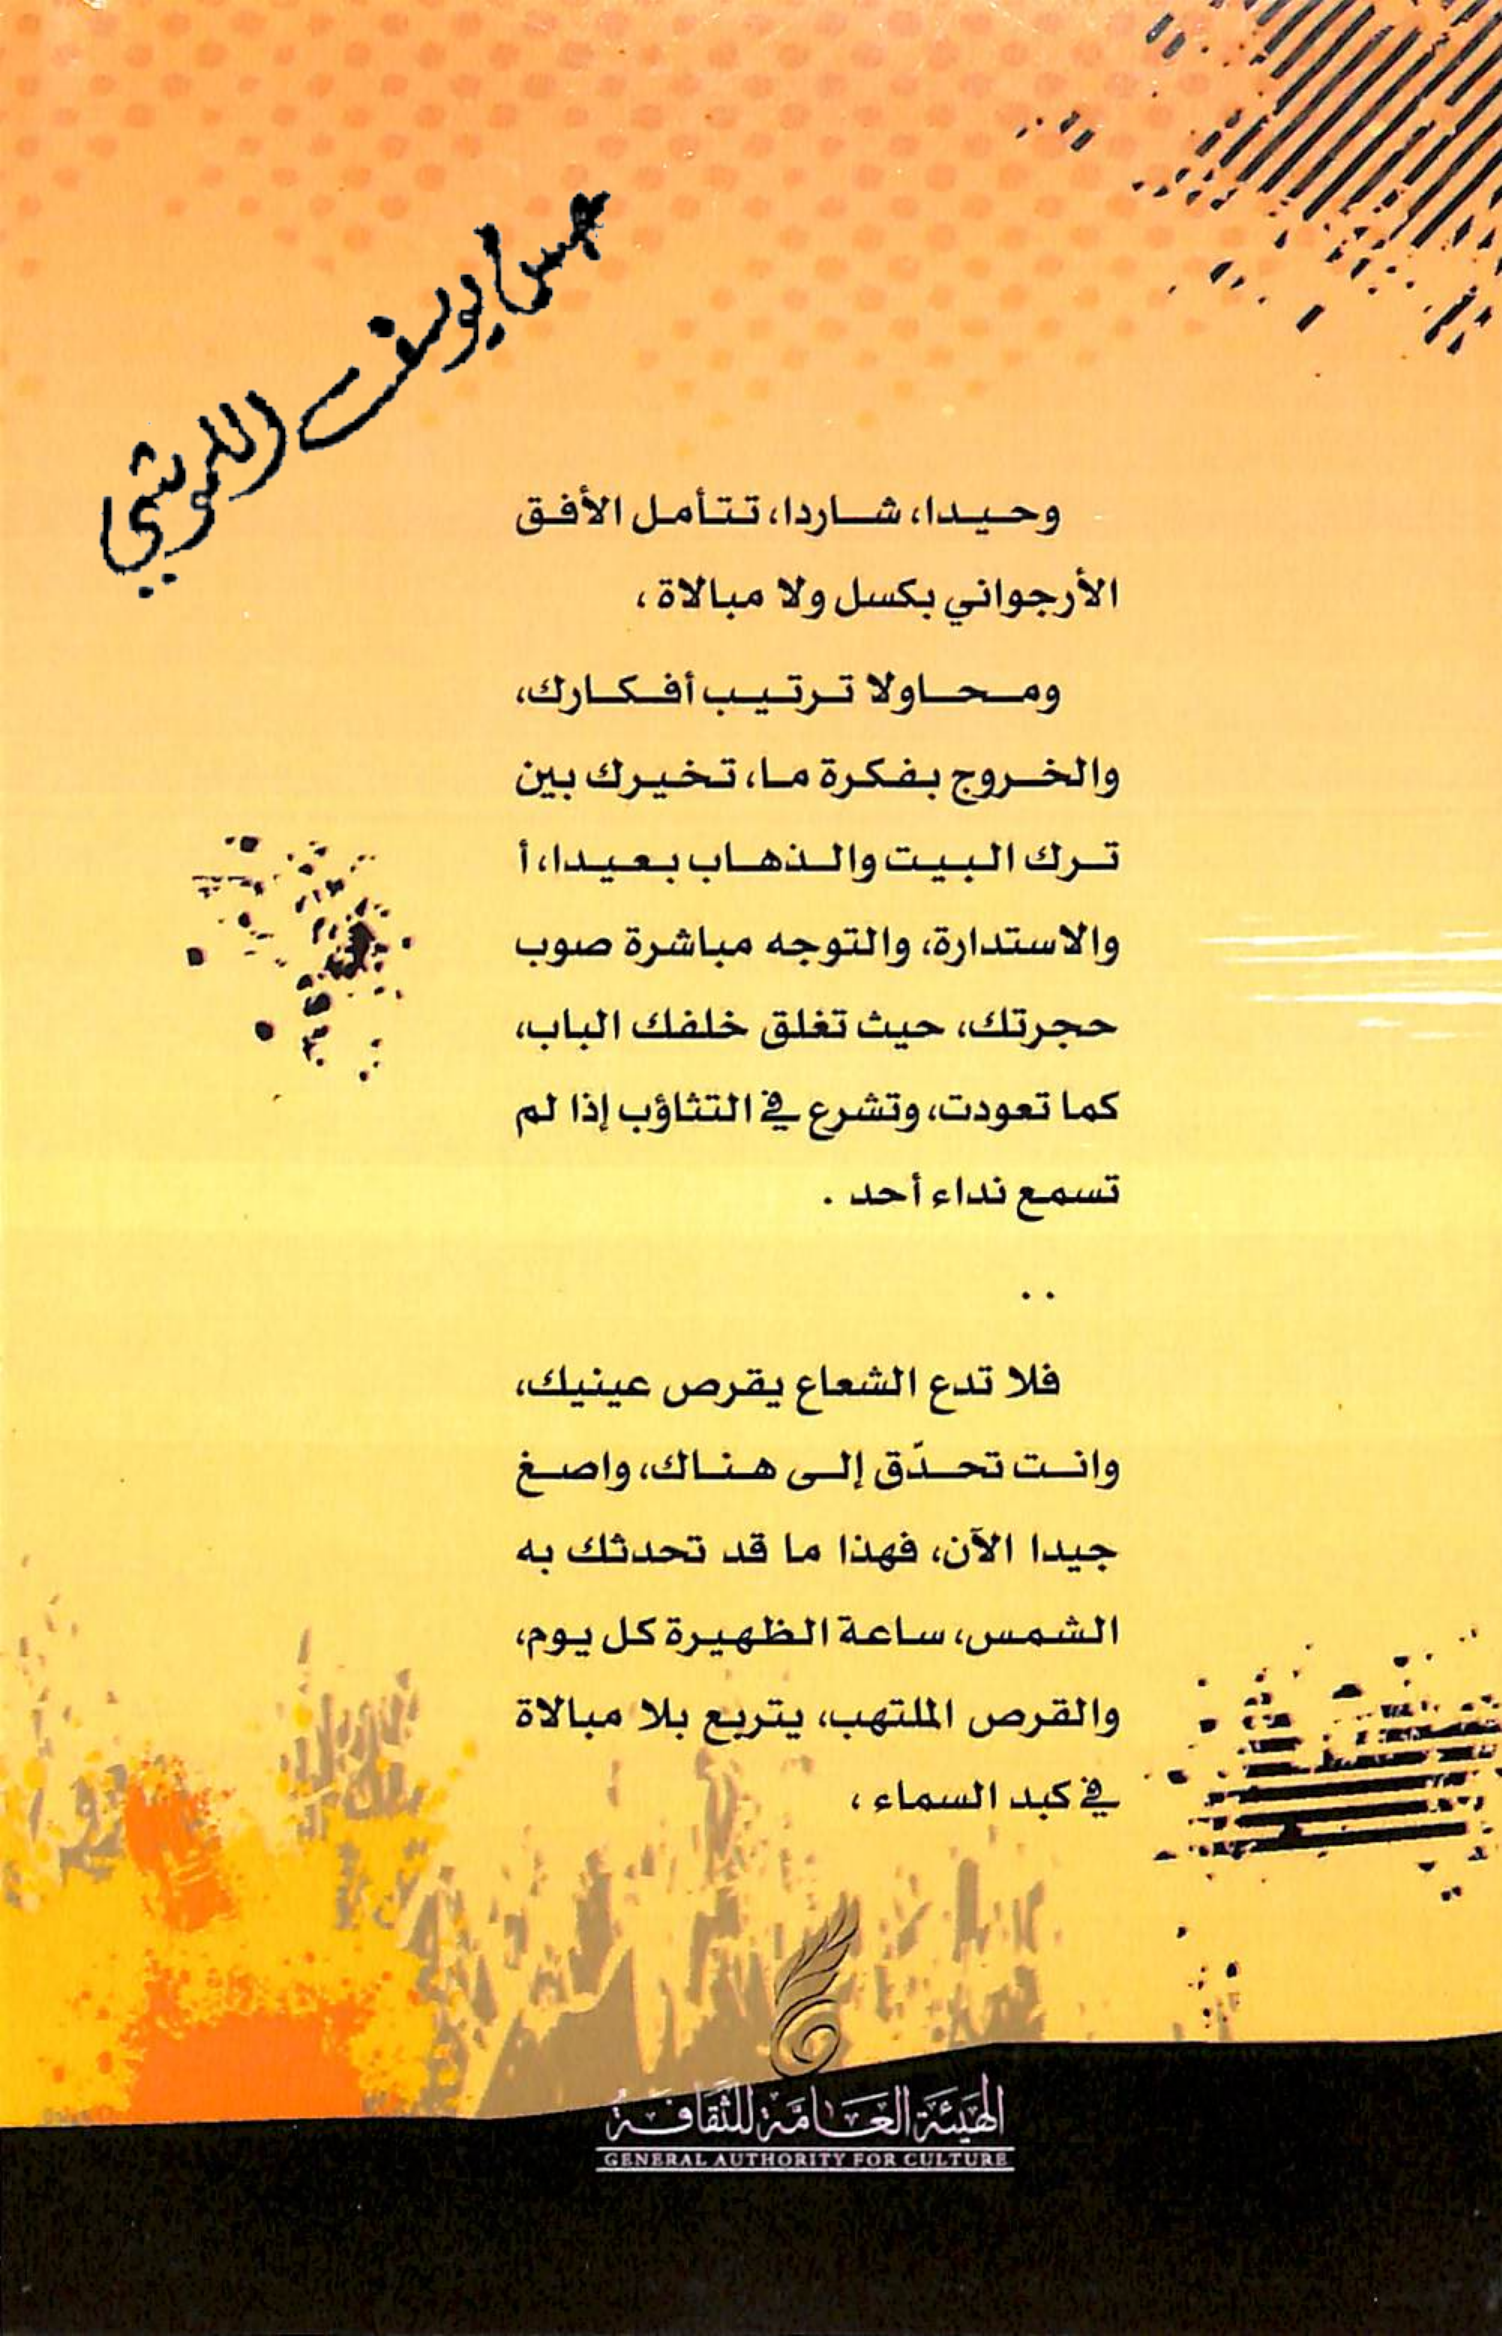 يوسف
وحيدا، شاردا، تتأمل الأفق
الأرجواني بكسل ولا مبالاة ،
ومحاولا ترتيب أفكارك،
والخروج بفكرة ما، تخيرك بين
ترك البيت والذهاب بعيدا، أ
والاستدارة، والتوجه مباشرة صوب
حجرتك، حيث تغلق خلفك الباب،
كما تعودت، وتشرع في التثاؤب إذا لم
تسمع نداء أحد .
. .
فلا تدع الشعاع يقرص عينيك،
وانت تحدّق إلى هناك، واصغ
جيدا الآن، فهذا ما قد تحدثك به
الشمس، ساعة الظهيرة كل يوم،
والقرص الملتهب، يتربع بلا مبالاة
في كبد السماء ،
الهيئة العامة للثقافة
GENERAL AUTHORITY FOR CULTURE